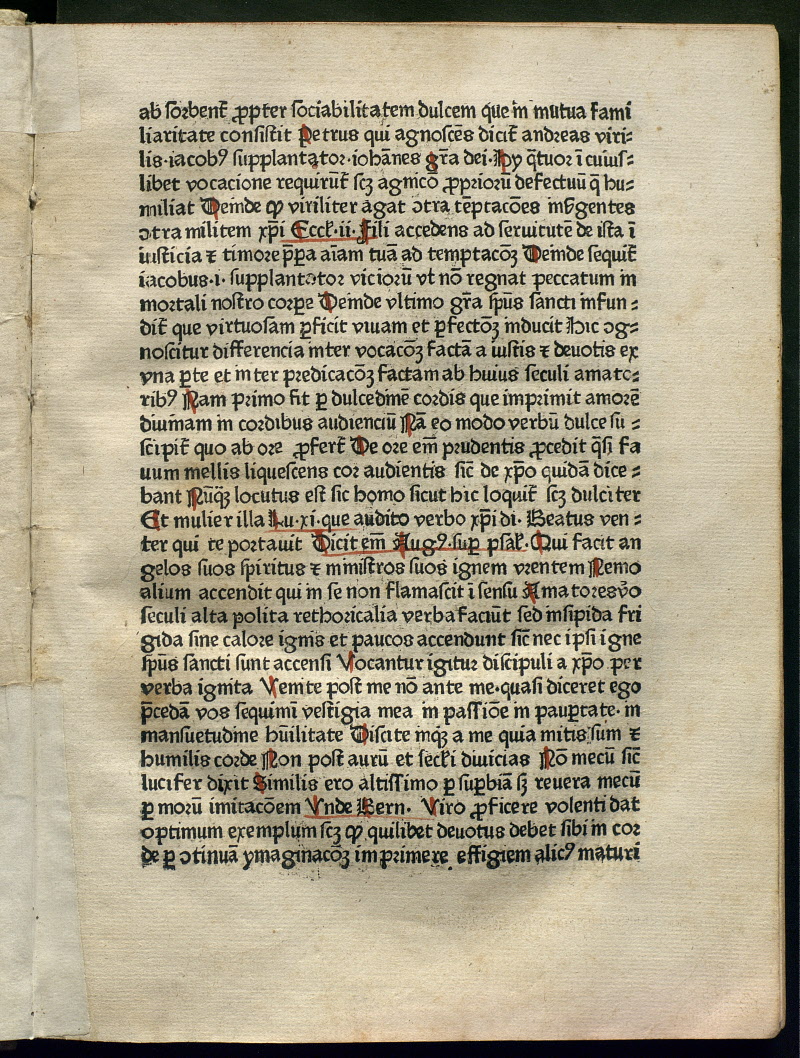 ab ſorbent̄ ꝓpter ſociabilitatem dulcem que in mutua fami
liaritate conſiſtit Petrus qui agnoſcēs dicit̄ andreas viri⸗
lis·iacobꝰ ſupplantator·iohānes gr̄a dei·Hy q̄tuor ī cuiuſ⸗
libet vocacione requirūt̄ ſcꝫ agnicō ꝓpriorū defectuū q̄ hu⸗
miliat Deinde ꝙ viriliter agat ↄtra tēptacōes inſ̄gentes
ↄtra militem xp̄i Eccl̄·ii·Fili accedens ad ſeruitutē de iſta ī
iuſticia ⁊ timore p̄ꝑa aīam tuā ad temptacōꝫ Deinde ſequit̄
iacobus·i·ſupplantator viciorū vt nō regnat peccatum in
mortali noſtro corꝑe Deinde vltimo gr̄a ſpūs ſancti infun⸗
dit̄ que virtuoſam ꝑficit viuam et ꝑfectōꝫ inducit Hic ↄg⸗
noſcitur differencia inter vocacōꝫ factā a iuſtis ⁊ deuotis ex
vna ꝑte et inter predicacōꝫ factam ab huius ſeculi amato⸗
ribꝰ Nam primo fit ꝑ dulcedinē cordis que imprimit amorē
diuinam in cordibus audienciū Nā eo modo verbū dulce ſu⸗
ſcipit̄ quo ab ore ꝓfert̄ De ore em̄ prudentis ꝓcedit q̄ſi fa
uum mellis liqueſcens cor audientis ſic̄ de xp̄o quidā dice⸗
bant Nūq̄ꝫ locutus eſt ſic homo ſicut hic loquit̄ ſcꝫ dulciter
Et mulier illa Lu·xi·que audito verbo xp̄i di·Beatus ven⸗
ter qui te portauit Dicit em̄ Augꝰ·ſuꝑ pſal̄·Qui facit an
gelos ſuos ſpiritus ⁊ miniſtros ſuos ignem vrentem Nemo
alium accendit qui in ſe non flamaſcit ī ſenſu Amatores v̊o
ſeculi alta polita rethoricalia verba faciūt ſed inſipida fri
gida ſine calore ignis et paucos accendunt ſic̄ nec ipſi igne
ſpūs ſancti ſunt accenſi Vocantur igitur diſcipuli a xp̄o per
verba ignita Venite poſt me nō ante me·quaſi diceret ego
p̄cedā vos ſequimī veſtigia mea in paſſiōe in pauꝑtate·in
manſuetudine hūilitate Diſcite inqꝫ a me quia mitis ſum ⁊
humilis corde Non poſt aurū et ſecl̄i diuicias Nō mecū ſic̄
lucifer dixit Similis ero altiſſimo ꝑ ſuꝑbiā ſꝫ reuera mecū
ꝑ morū imitacōem Vnde Bern· Viro ꝓficere volenti dat
optimum exemplum ſcꝫ ꝙ quilibet deuotus debet ſibi in cor
de ꝑ ↄtinuā ymaginacōꝫ imprimere effigiem alicꝰ maturi